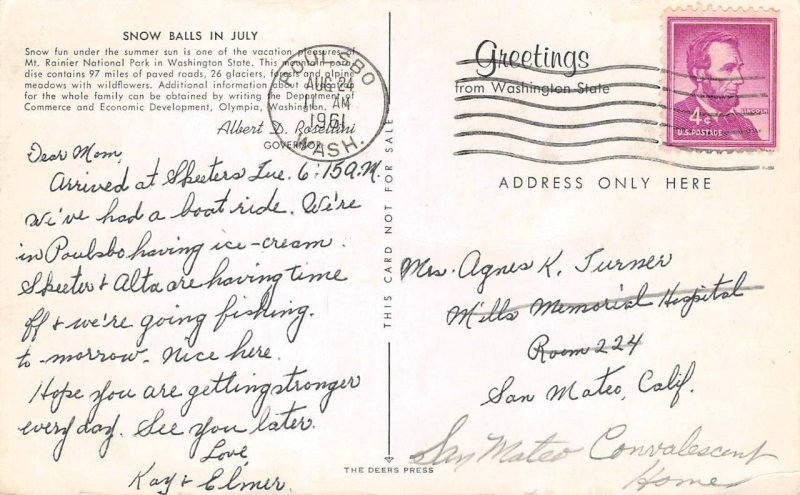 SNOW BALLS IN JULY
Snow fun under the summer sun is one of the vacation pleasures of
Mt. Rainier National Park in Washington State. This mountain para-
dise contains 97 miles of paved roads, 26 glaciers, forests and alpine
meadows with wildflowers. Additional information
for the whole family can be obtained by writing the Department of
Commerce and Economic Development, Olympia, Washington.
Albert D. Rosellini
GOVERNOR
POULSBO
AUG 24
11 AM
1961
WASH.
Dear Mom,
Arrived at Skeeters Tue. 6:15 A.M.
We've had a boat ride. We're
in Poulsbo having ice-cream.
Skeeter & Alta are having time
off & we're going fishing.
to-morrow. Nice here.
Hope you are getting stronger
every day. See you later.
Love,
Kay & Elmer.
THIS CARD NOT FOR SALE
THE DEERS PRESS
Greetings
from Washington State
LINCOLN
4¢
U.S. POSTAGE
ADDRESS ONLY HERE
Mrs. Agnes K. Turner
Mills Memorial Hospital
Room 224
San Mateo, Calif.
San Mateo Convalescent
Home